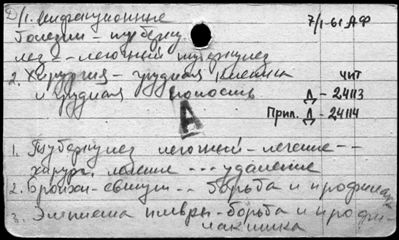 D/1. инфекционные
7/1-61 АФ
болезни - туберку
лез - легочный туберкулез
2. Хирургия - грудная клетка
чит
и грудная полость
Д - 24113
А
Прил. Д - 24114
1. Туберкулез легочный - лечение --
хирург. лечение --- удаление
2. Бронхи - свищи -- борьба и профилакти
3. Эмпиема плевры - борьба и профи-
лактика